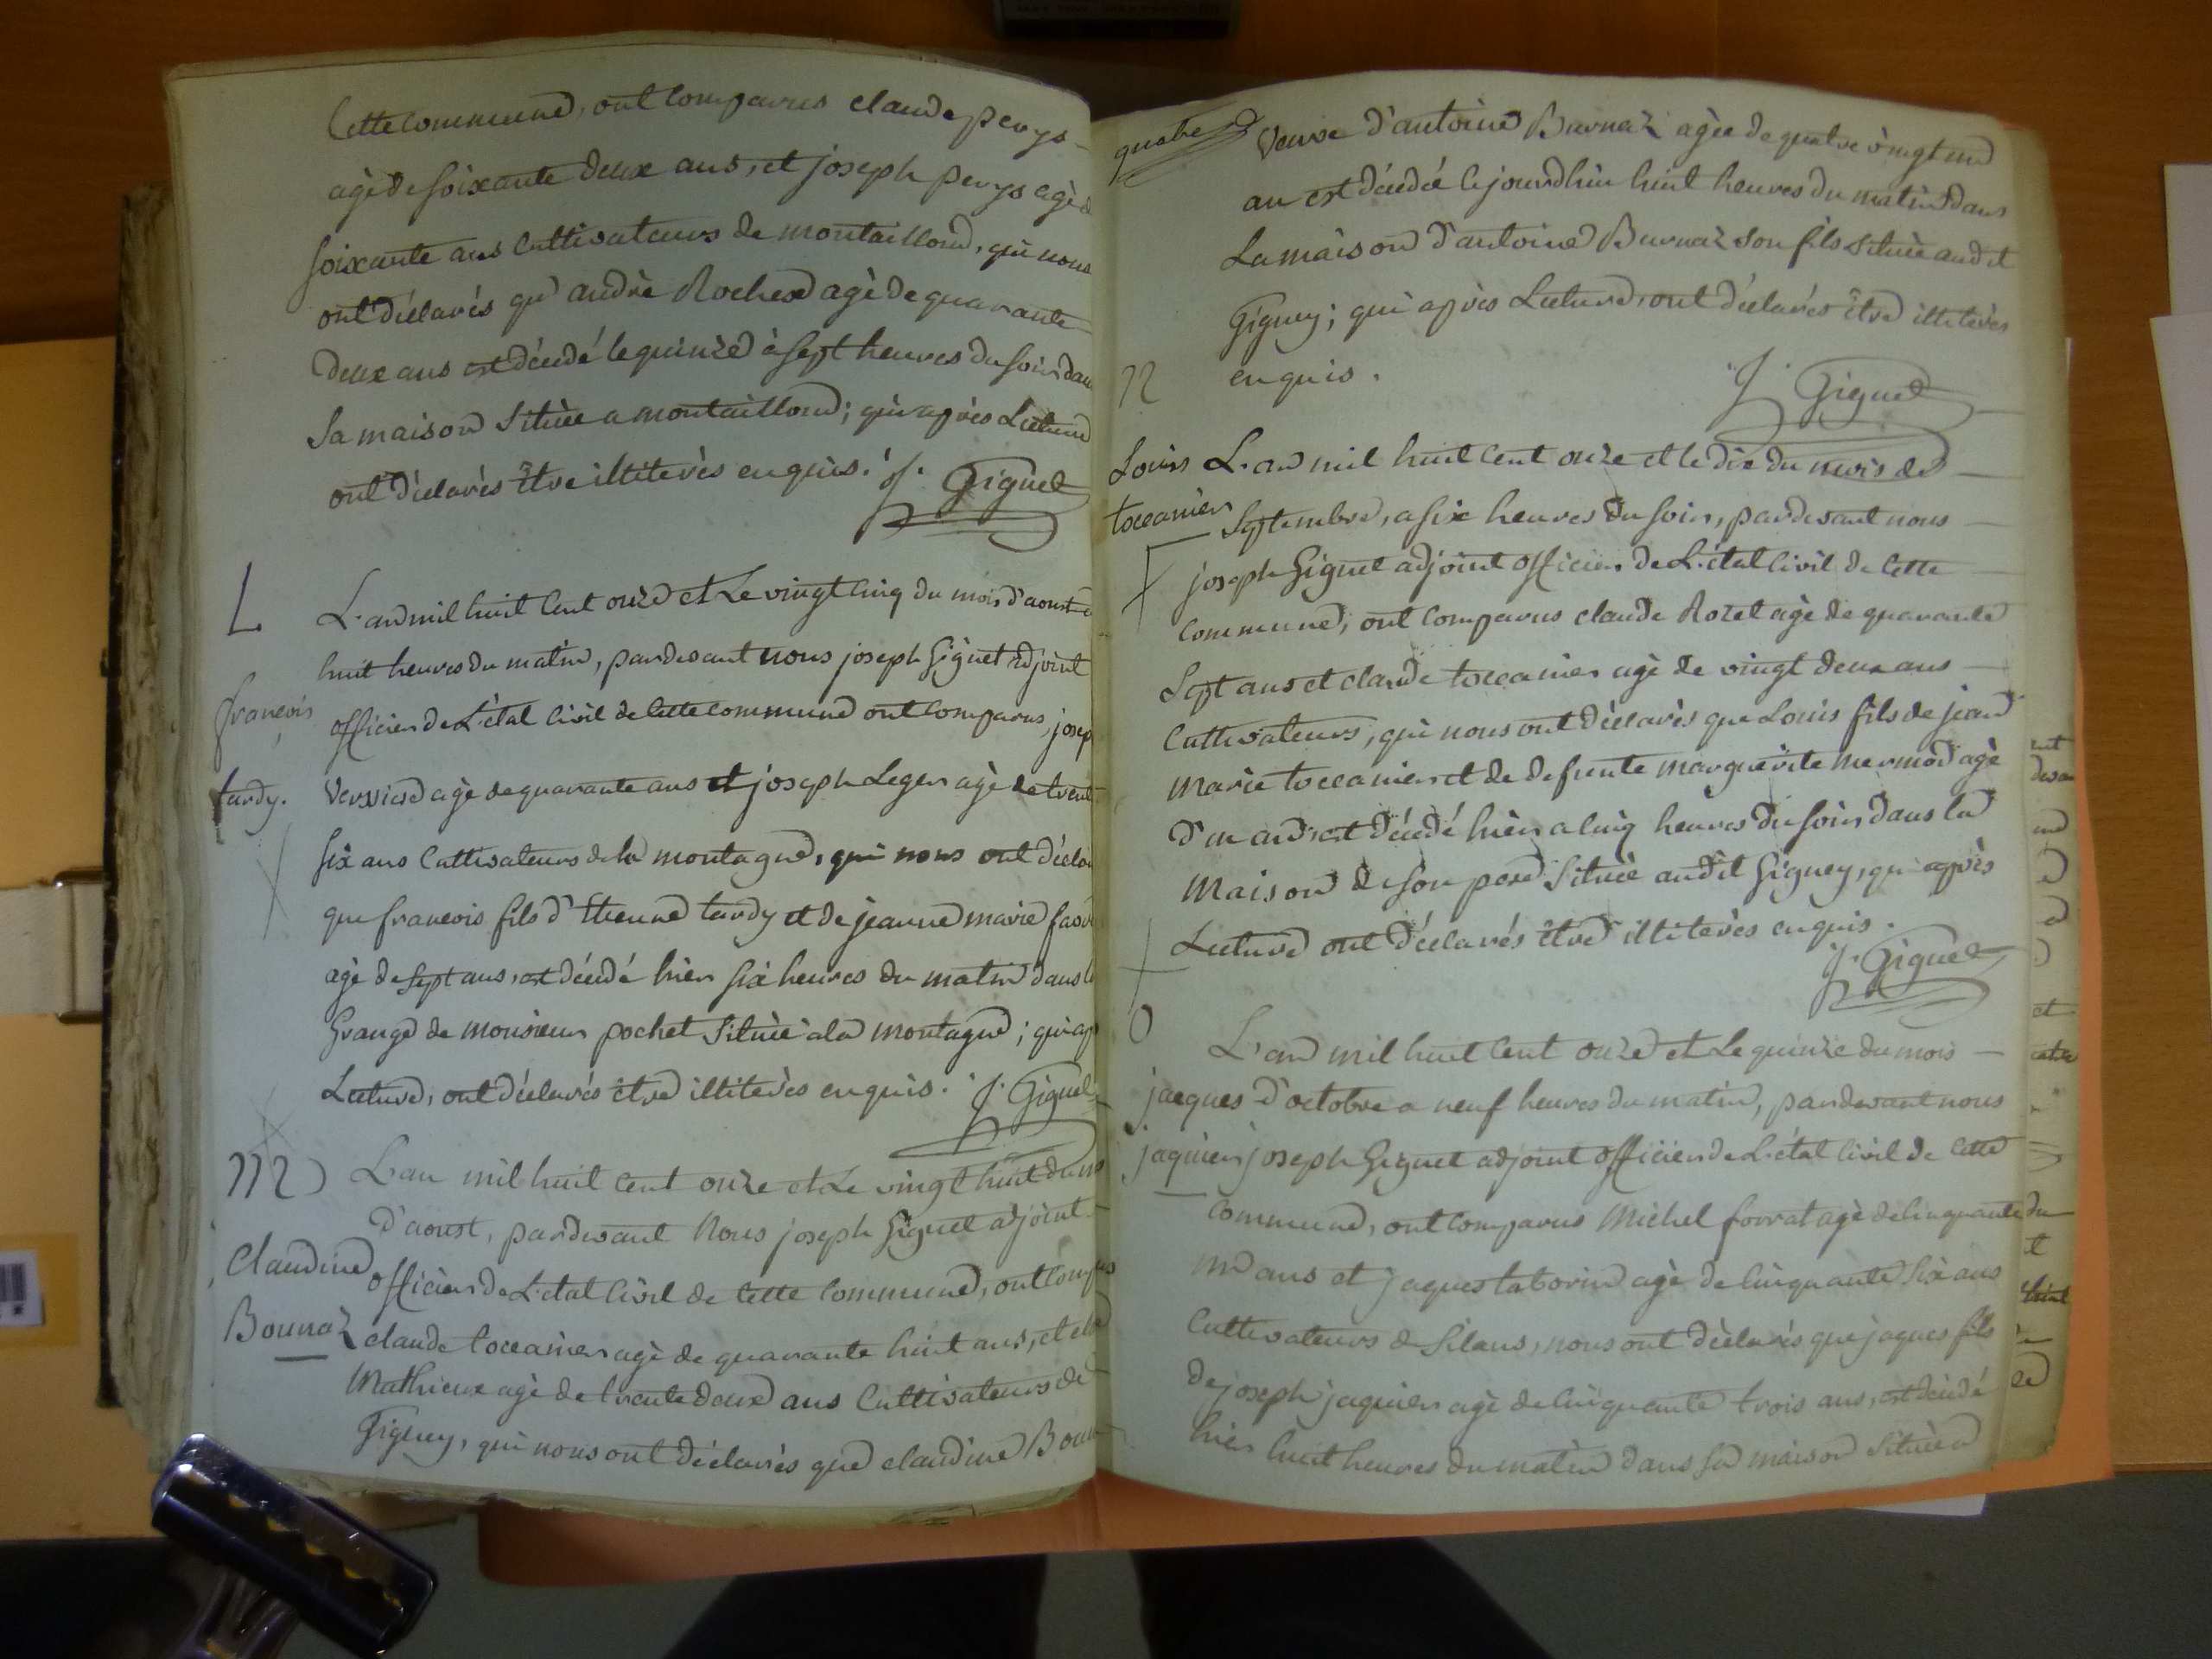 Cette commune, ont comparus claude perys
agé de soixante deux ans, et joseph perys agé de
soixante ans cultivateurs de montaillond, qui nous
ont déclarés que andré Rocher agé de quarante
deux ans est décédé le quinze à sept heures du soir dans
sa maison située a montaillond; qui après Lecture
ont déclarés être illiterés enquis. J. Giguet
L
L'an mil huit cent onze et Le vingt cinq du mois d'aoust a
huit heures du matin, pardevant nous joseph Giguet adjoint
françois
officier de L'état civil de cette commune ont comparus, josep
tardy.
agé de quarante ans et joseph Leger agé de trent
six ans cultivateurs de la montagne, qui nous ont décla
que francois fils d'Etienne tardy et de jeanne marie
agé de sept ans, est décédé hier six heures du matin dans l
Grange de monsieur pochet située a la montagne; qui ap
Lecture, ont déclarés être illiterés enquis. J. Giguet
M
L'an mil huit cent onze et Le vingt huit du mo
d'aoust, pardevant Nous joseph Giguet adjoint
Claudine
officier de L'état Civil de cette commune, ont comparus
Bounaz
claude toccanier agé de quarante huit ans, et
Mathieux agé de trente deux ans cultivateurs de
Gigney, qui nous ont déclarés que claudine Boun
quatre
Veuve d'antoine Burnaz agée de quatre vingt un
an est décédée cejourdhui huit heures du matin dans
La maison d'antoine Burnaz son fils située audit
Gigney; qui après Lecture, ont déclarés être illiterés
enquis.
J. Giguet
N
Louis
toccanier
L'an mil huit cent onze et le dix du mois de
Septembre, a six heures du soir, pardevant nous
joseph Giguet adjoint officier de L'état civil de cette
commune, ont comparus claude Rozet agé de quarante
sept ans et claude toccanier agé de vingt deux ans
cultivateurs, qui nous ont déclarés que Louis fils de jean
marie toccanier et de defunte marguerite mermod agé
d'un an, est décédé hier a cinq heures du soir dans la
maison de son pere située audit Gigney, qui après
Lecture ont déclarés être illiterés enquis.
J. Giguet
O
jacques
jaquier
L'an mil huit cent onze et Le quinze du mois
d'octobre a neuf heures du matin, pardevant nous
joseph Giguet adjoint officier de L'état civil de cette
commune, ont comparus Michel forrat agé de cinquante
un ans et jaques taborin agé de cinquante six ans
cultivateurs de silans, nous ont déclarés que jaques fils
de joseph jaquier agé de cinquante trois ans, est décédé
hier huit heures du matin dans sa maison située a